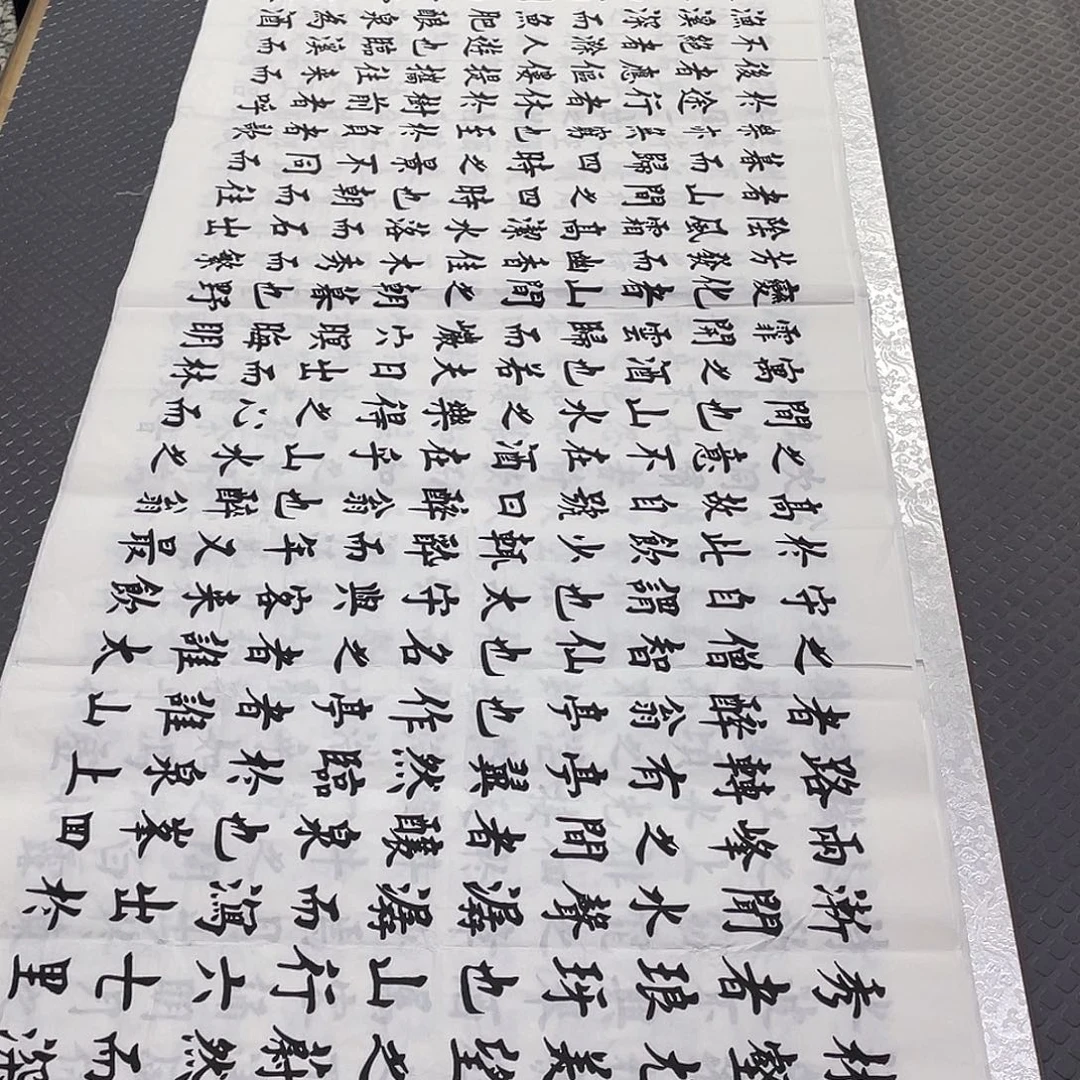 林壑尤美望之蔚然而深
秀者琅玡也山行六七里
漸聞水聲潺潺而瀉出於
兩峰之間者釀泉也峯四
路轉有亭翼然臨於泉上
者醉翁亭也作亭者誰山
之僧智仙也名之者誰太
守自謂也太守與客來飲
於此飲少輒醉而年又最
高故自號曰醉翁也醉翁
之意不在酒在乎山水之
間也山水之樂得之心而
寓之酒也若夫日出而林
霏開雲歸而巖穴暝晦明
變化者山間之朝暮也野
芳發而幽香佳木秀而繁
陰風霜高潔水落而石出
者山間之四時也朝而往
暮而歸四時之景不同而
樂亦無窮也至於負者歌
於途行者休於樹前者呼
後者應傴僂提攜往來而
不絕者滁人遊也臨溪而
漁溪深而魚肥釀泉為酒